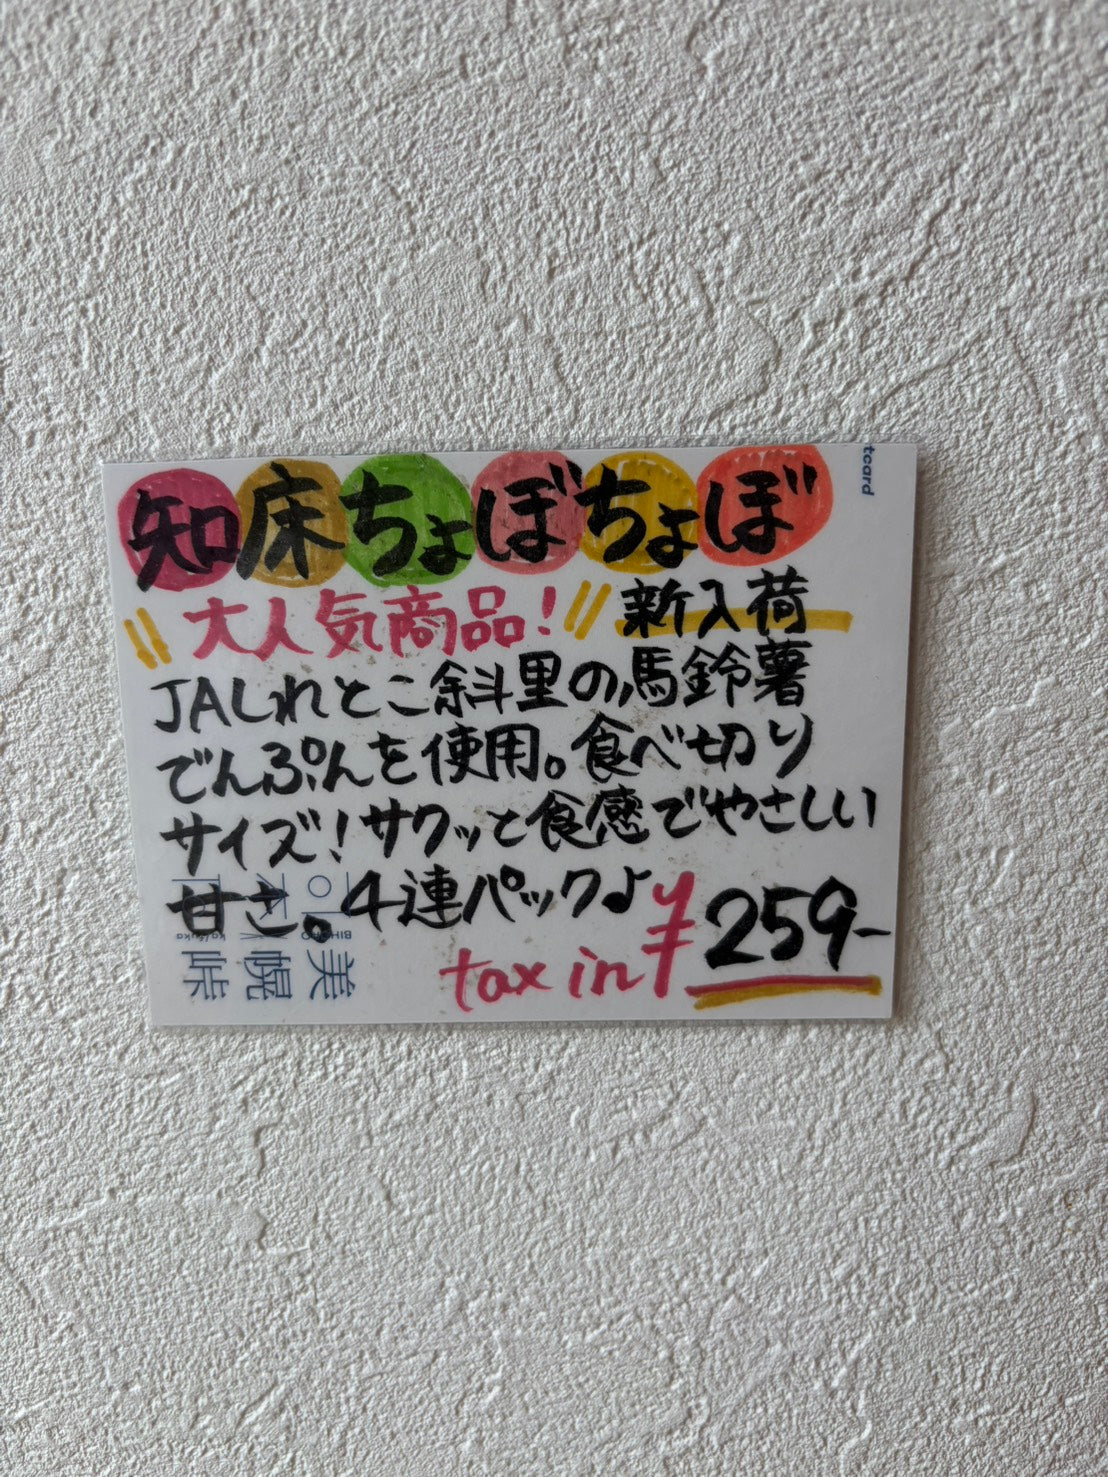 知床ちょぼちょぼ
大人気商品! 新入荷
JAしれとこ斜里の馬鈴薯
でんぷんを使用。食べ切り
サイズ!サクッと食感でやさしい
甘さ。4連パックよ
tax in ¥259-
tcard
美幌峠